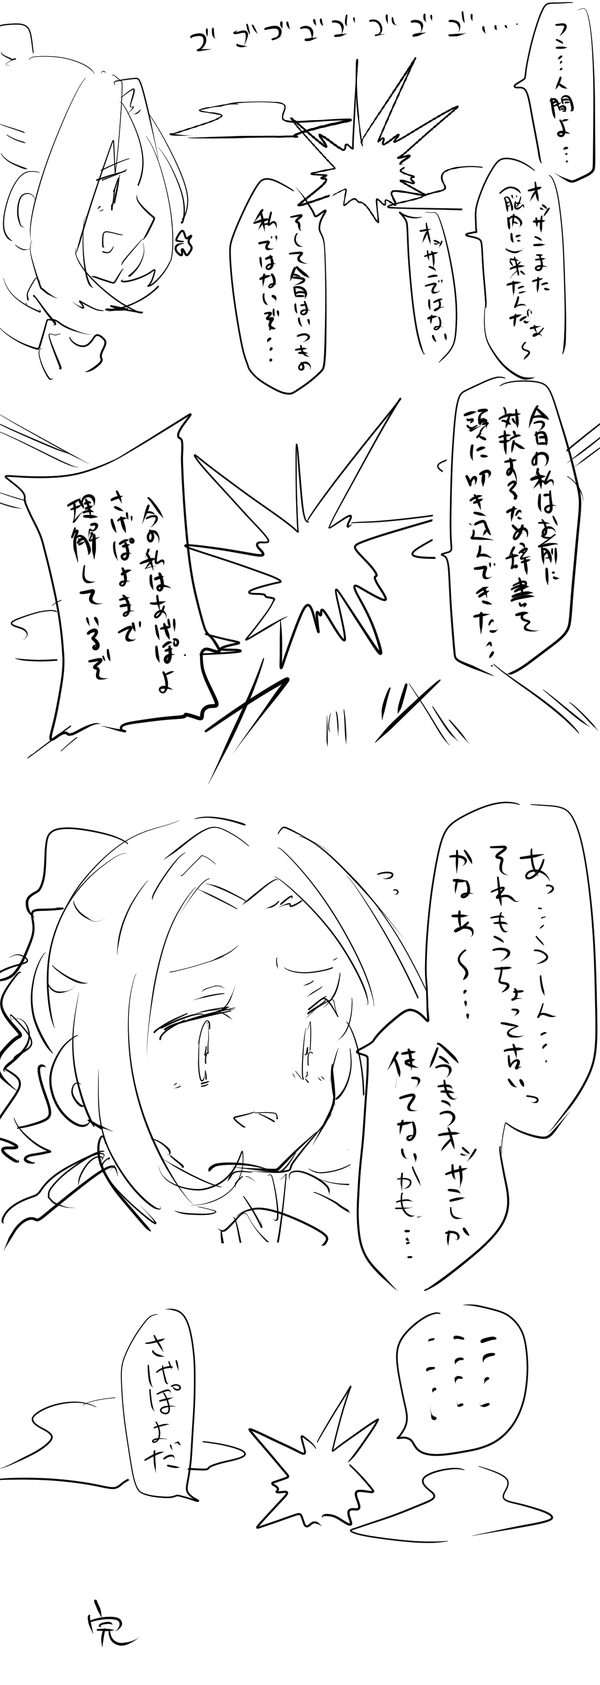 ゴゴゴゴゴゴゴゴ....
フン…人間よ…
オッサンまた
(脳内に)来たんだぁ〜
オッサンではない
そして今日はいつもの
私ではないぞ…
今日の私はお前に
対抗するため辞書を
頭に叩き込んできた…
今の私はあげぽよ
さげぽよまで
理解しているぞ
あっ…うーん…
それもうちょって古いっ
かなぁ〜…
今もうオッサンしか
使ってないかも…
………
さげぽよだ
完